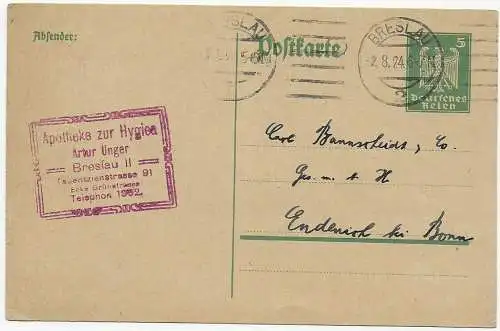 Absender:
Postkarte
BRESLAU
BRESLAU
2.8.24.
5
Deutsches
Reich
Apotheke zur Hygiea
Artur Unger
Breslau II
Tauentzienstrasse 91
Ecke Brüderstrasse
Telephon 1952.
Carl Bannscheidt, Co.
Ges. m. b. H
Endenich bei Bonn